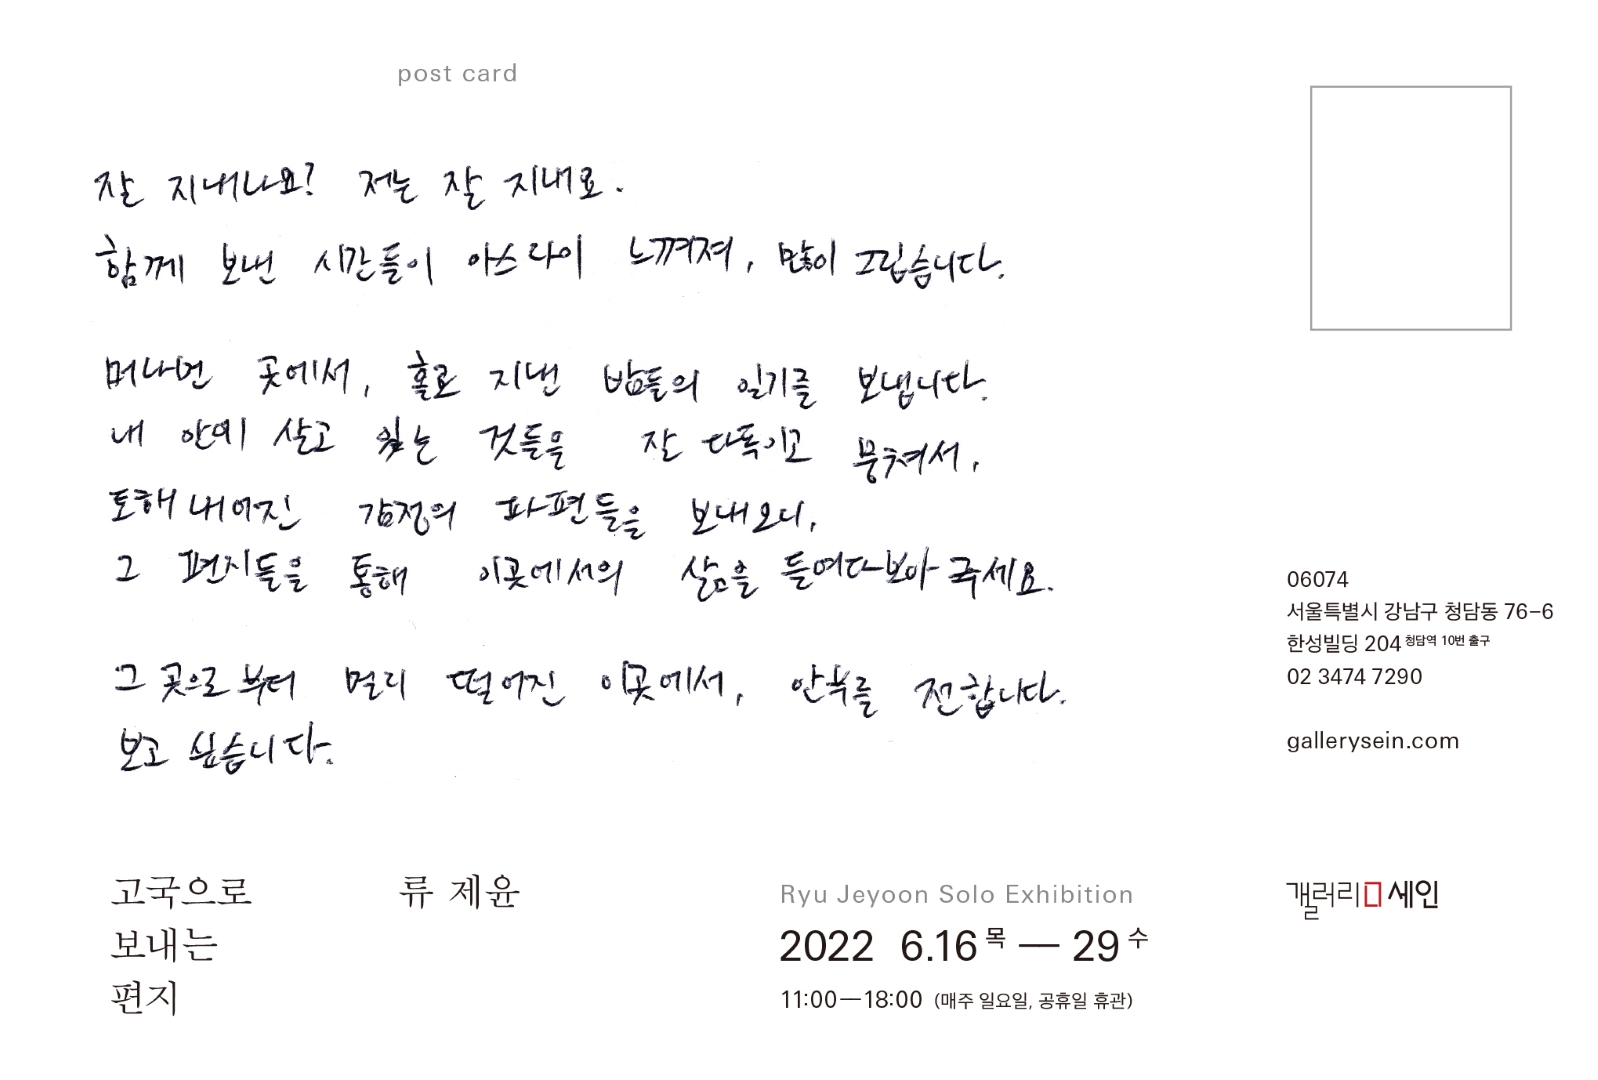 post card
잘 지내나요? 저는 잘 지내요.
함께 보낸 시간들이 아스라이 느껴져, 많이 그립습니다.
머나먼 곳에서, 홀로 지낸 밤들의 일기를 보냅니다.
내 안에 살고 있는 것들을 잘 다독이고 뭉쳐서,
토해내어진 감정의 파편들을 보내오니,
그 편지들을 통해 이곳에서의 삶을 들여다보아 주세요.
그 곳으로부터 멀리 떨어진 이곳에서, 안부를 전합니다.
보고 싶습니다.
06074
서울특별시 강남구 청담동 76-6
한성빌딩 204 청담역 10번 출구
02 3474 7290
gallerysein.com
고국으로
보내는
편지
류 제윤
Ryu Jeyoon Solo Exhibition
2022 6.16 목 — 29 수
11:00—18:00 (매주 일요일, 공휴일 휴관)
갤러리 세인